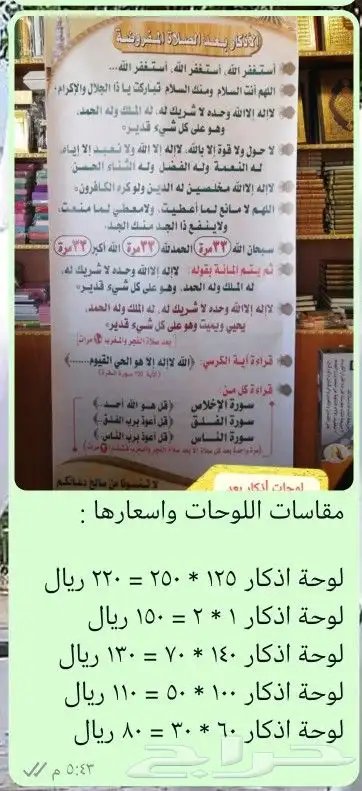 الأذكار بعد الصلاة المفروضة
أستغفر الله، أستغفر الله، أستغفر الله...
اللهم أنت السلام ومنك السلام تباركت يا ذا الجلال والاكرام.
لااله الاالله وحده لا شريك له، له الملك وله الحمد،
وهو على كل شيء قدير»
لا حول ولا قوة إلا بالله، لااله إلا الله ولا نعبد إلا إياه،
له النعمة وله الفضل وله الثناء الحسن
لااله إلاالله مخلصين له الدين ولو كره الكافرون»
اللهم لا مانع لما أعطيت، ولامعطي لما منعت،
ولاينفع ذا الجد منك الجد،
سبحان الله ٣٣مرة الحمدلله ٣٣مرة الله أكبر ٣٣مرة
ثم يتم المائة بقوله: لااله إلاالله وحده لا شريك له،
له الملك وله الحمد، وهو على كل شيء قدير»
لااله إلاالله وحده لا شريك له، له الملك وله الحمد،
يحيي ويميت وهو على كل شيء قدير»
بعد صلاة الفجر والمغرب ١٠ مرات
قراءة آية الكرسي: (الله لااله إلا هو الحي القيوم.......)
(الآية ٢٥٥ سورة البقرة)
قراءة كل من:
سورة الإخلاص (قل هو الله أحد..)
سورة الفلق (قل أعوذ برب الفلق..)
سورة الناس (قل أعوذ برب الناس..)
لا تنسونا من صالح دعائكم
لوحات أذكار بعد
مقاسات اللوحات واسعارها :
لوحة اذكار ١٢٥ * ٢٥٠ = ٢٢٠ ريال
لوحة اذكار ١ * ٢ = ١٥٠ ريال
لوحة اذكار ١٤٠ * ٧٠ = ١٣٠ ريال
لوحة اذكار ١٠٠ * ٥٠ = ١١٠ ريال
لوحة اذكار ٦٠ * ٣٠ = ٨٠ ريال
٥:٤٣ م
حراج